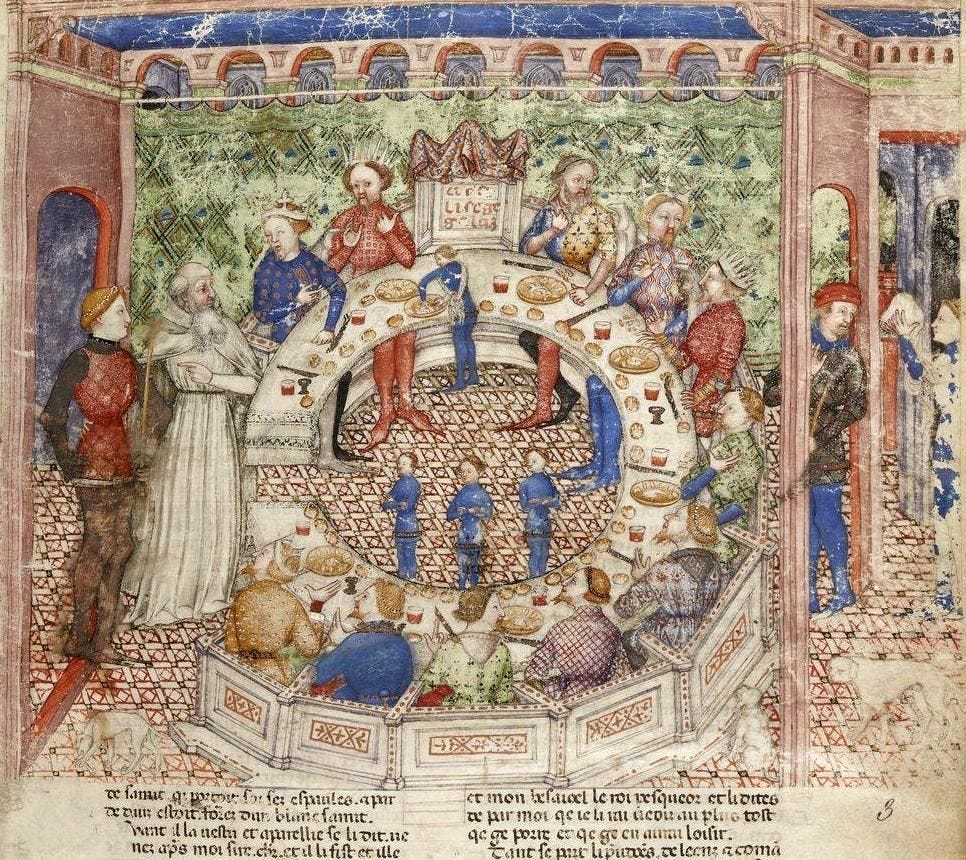 li sege
de samit q portoit sor ses espaules. a par
de dair estoit forrez dun blanc samit.
vant il la vestu et aparellie se li dit. ve
nez aps moi sire. chr. et il li fist et ille
et mon besaioel le roi pesqueor et li dites
de par moi que ie li irai ueoir au plus tost
qe ge porre et qe ge en aurai loisir.
Tant se part li de leenz a coma
3